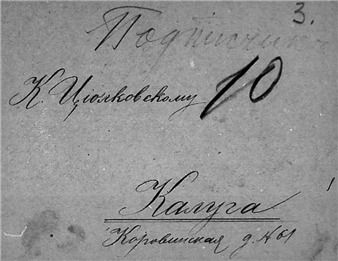 3.
Подписчик
К. Циолковскому 10
Калуга
Коровинская д. № 61